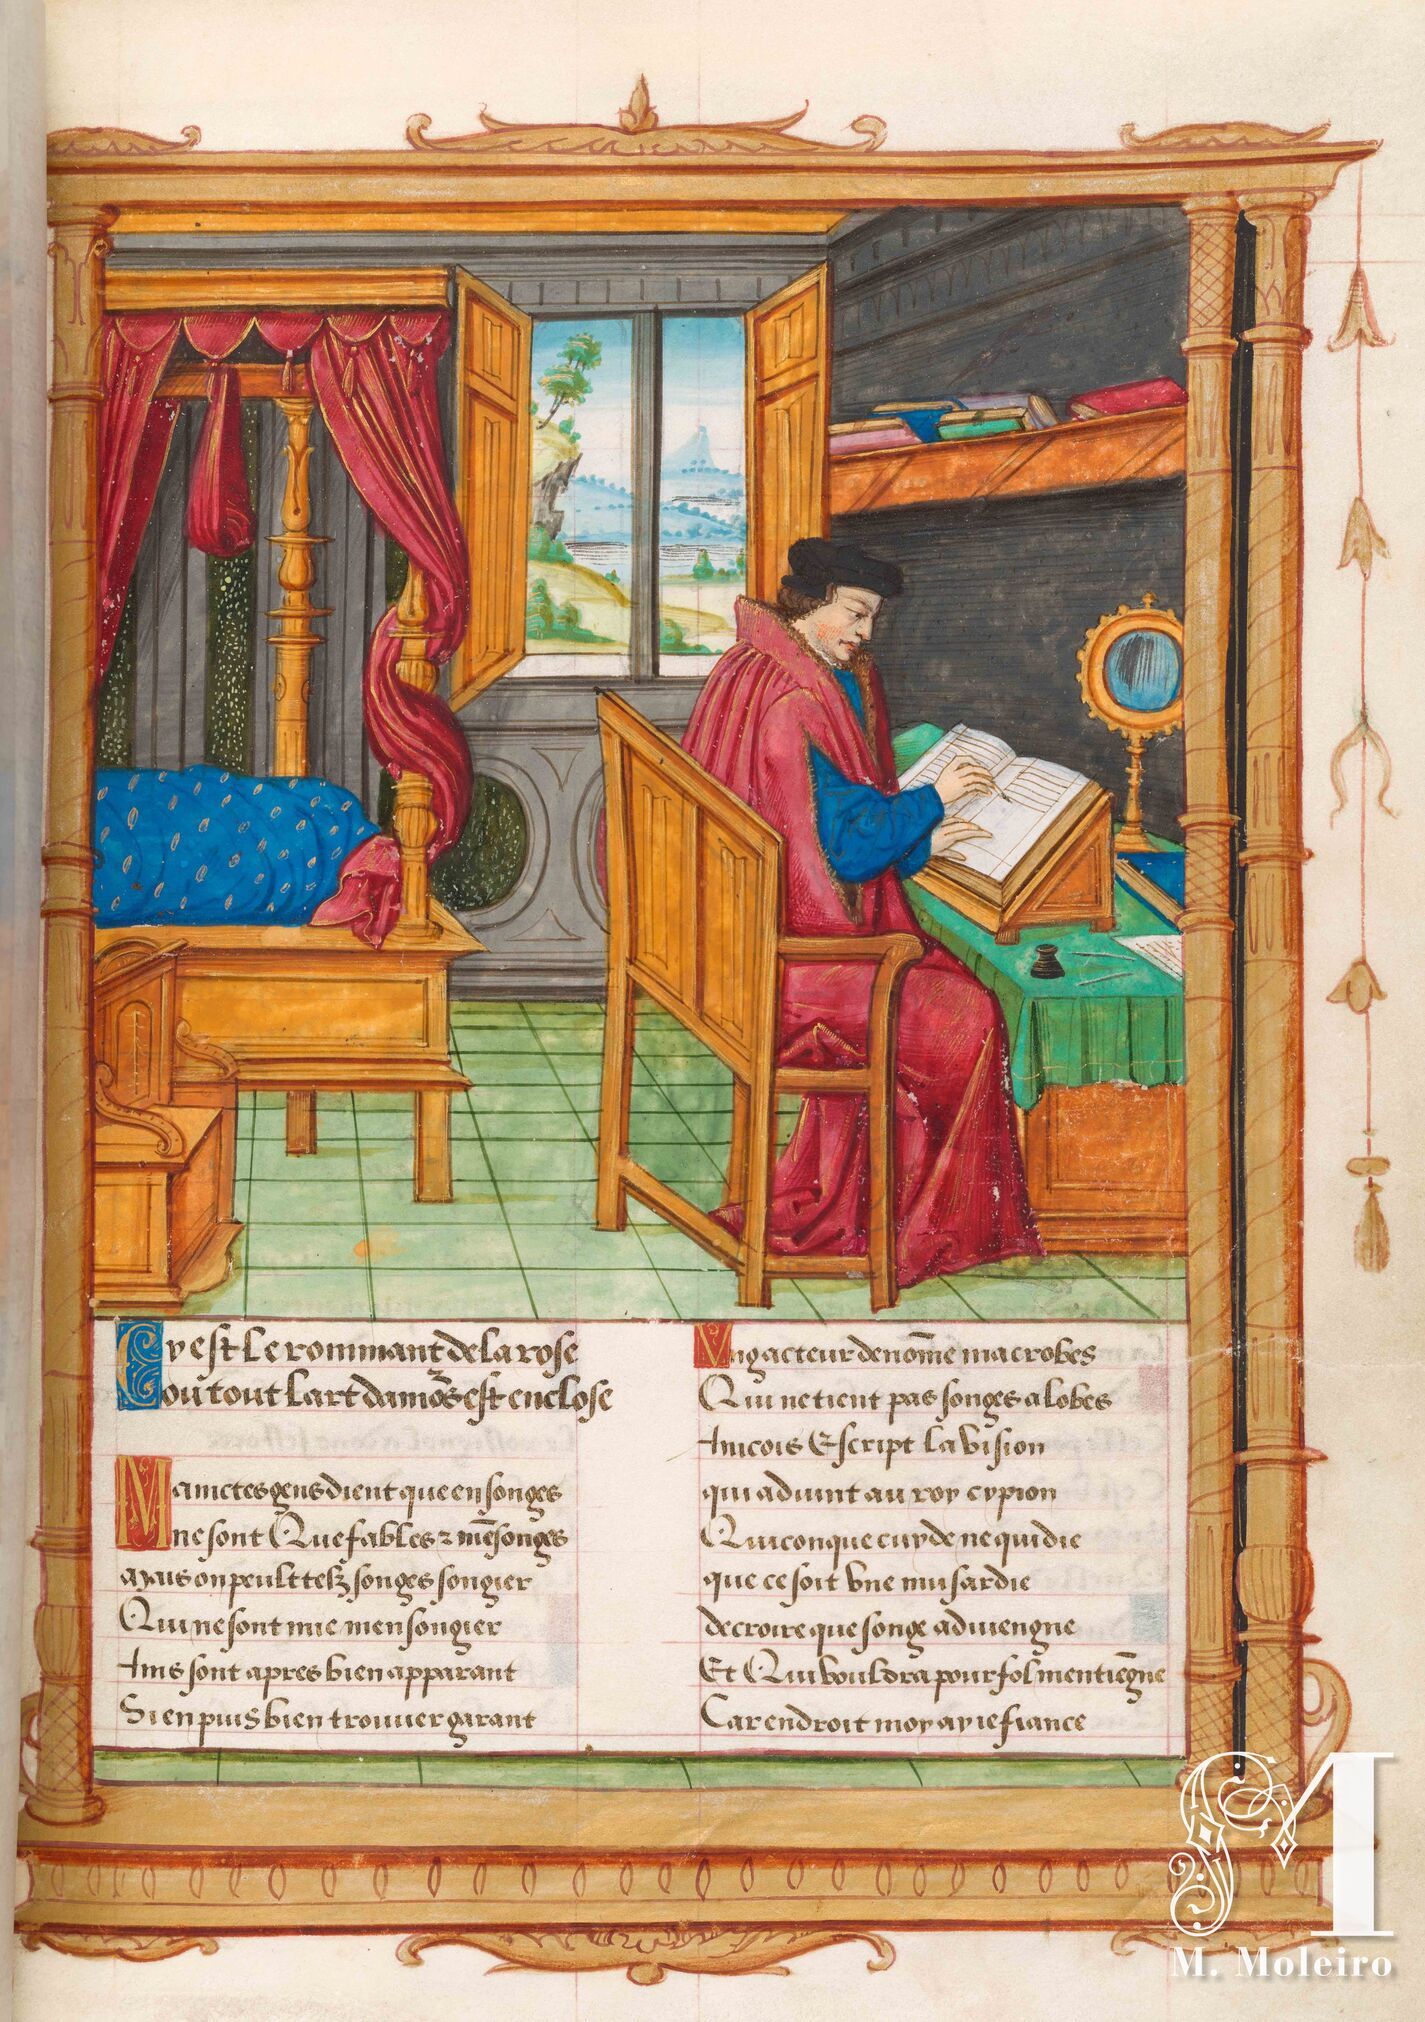 Cy est Le rommant de la rose
ou tout Lart damo͛s est enclose
Mainctes gens dient que en songes
ne sont Que fables ⁊ mẽsonges
Mais on peult telz songes songier
Qui ne sont mie mensongier
Ains sont apres bien apparant
Si en puis bien trouuer garant
Vng acteur de nom̃e macrobes
Qui ne tient pas songes a lobes
Aincois Escript La vision
qui aduint au roy cypion
Quiconque cuyde ne qui die
que ce soit vne musardie
de croire que songe aduiengne
Et Qui vouldra pour fol men tiẽgne
Car endroit moy ay ie fiance
M. Moleiro